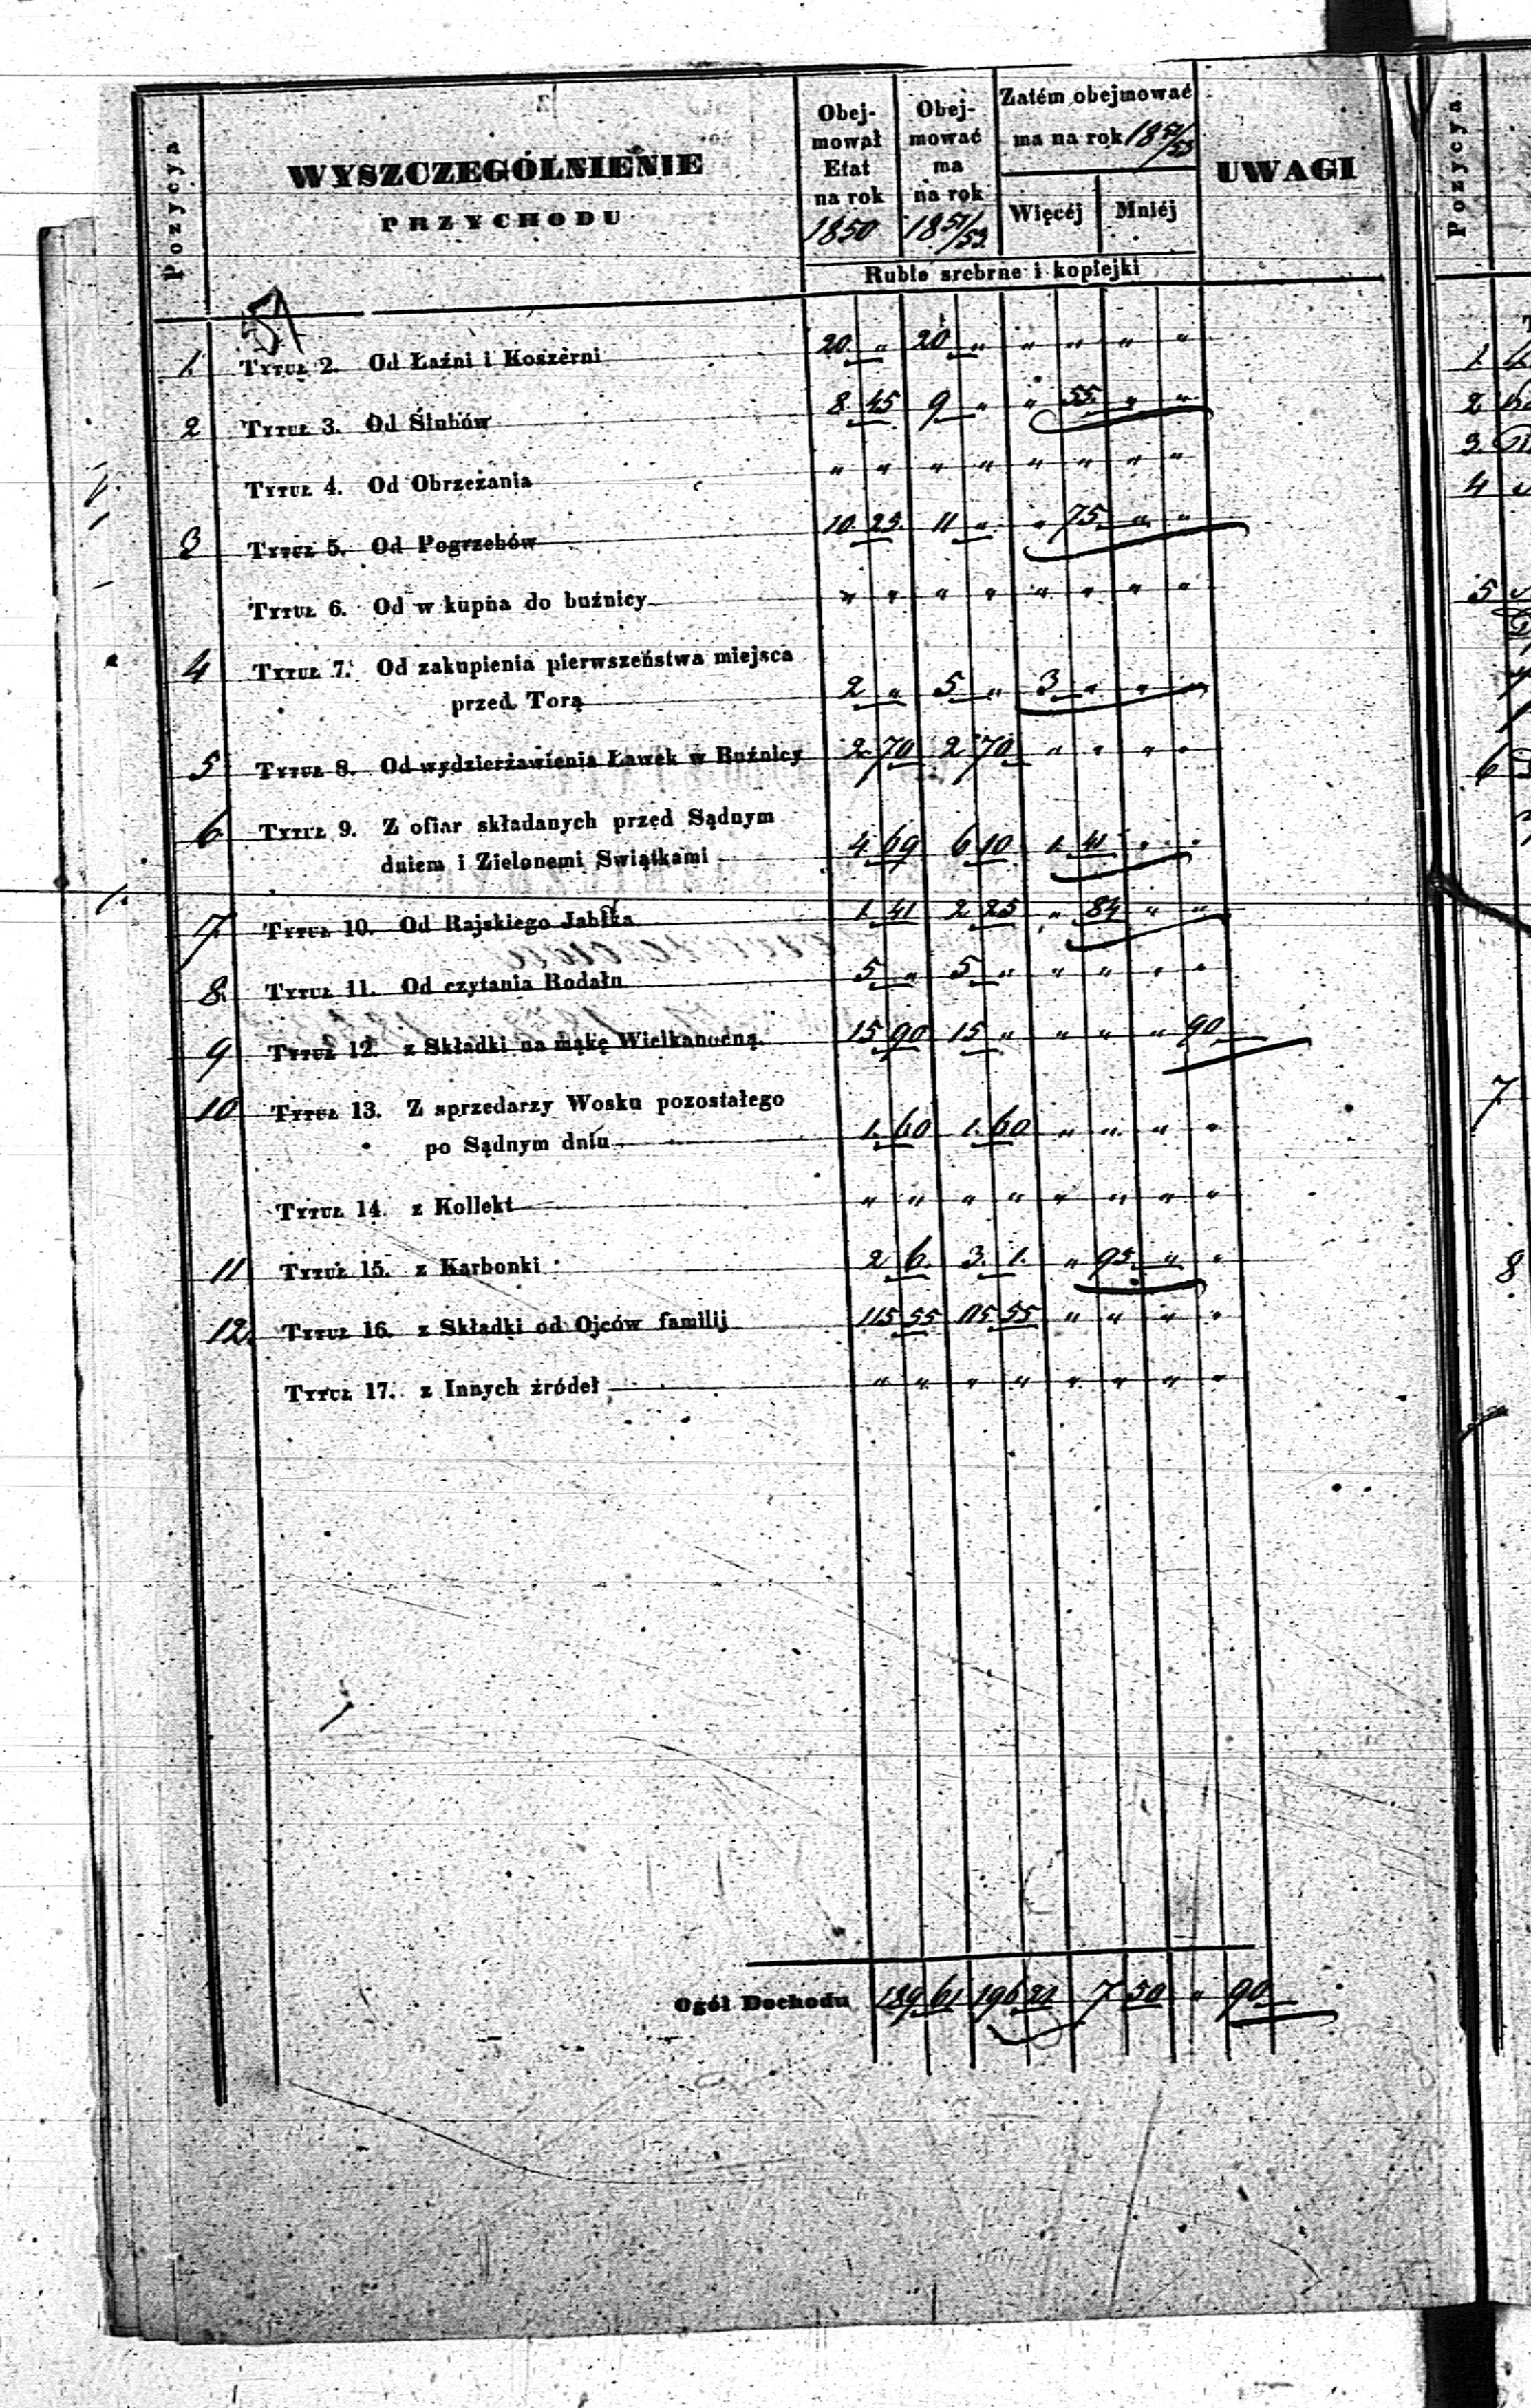 Pozycya
WYSZCZEGÓLNIENIE
PRZYCHODU
Obej-
mował
Etat
na rok
1850
Obej-
mować
ma
na rok
1851/53
Zatém obejmować
ma na rok 1851/53
Więcéj Mniéj
UWAGI
Ruble srebrne i kopiejki
1. Tytuł 2. Od Łaźni i Koszérni 20 „ 20 „ „ „ „ „
2 Tytuł 3. Od Ślubów 8 45 9 „ „ 55 „ „
Tytuł 4. Od Obrzezania „ „ „ „ „ „ „ „
3 Tytuł 5. Od Pogrzebów 10. 25. 11 „ „ 75. „ „
Tytuł 6. Od w kupna do buźnicy „ „ „ „ „ „ „ „
4 Tytuł 7. Od zakupienia pierwszeństwa miejsca
przed Torą 2 „ 5 „ 3 „ „ „
5 Tytuł 8. Od wydzierżawienia Ławek w Buźnicy 2 70 2 70 „ „ „ „
6 Tytuł 9. Z ofiar składanych przed Sądnym
dniem i Zielonemi Swiątkami 4 69 6 10 1. 41 „ „
7. Tytuł 10. Od Rajskiego Jabłka 1. 41 2 25 „ 84 „ „
8. Tytuł 11. Od czytania Rodału 5 „ 5 „ „ „ „ „
9 Tytuł 12. z Składki na mąkę Wielkanocną. 15 90 15 „ „ „ „ 90
10 Tytuł 13. Z sprzedarzy Wosku pozostałego
po Sądnym dniu 1. 60 1. 60 „ „ „ „
Tytuł 14. z Kollekt „ „ „ „ „ „ „ „
11 Tytuł 15. z Karbonki 2 6. 3. 1. „ 95. „ „
12. Tytuł 16. z Składki od Ojców familij 115 55 115 55 „ „ „ „
Tytuł 17. z Innych źródeł „ „ „ „ „ „ „ „
Ogół Dochodu 189 61 196 21 7 50 „ 90
Pozycya
1.
2.
3.
4
5
6
7
8